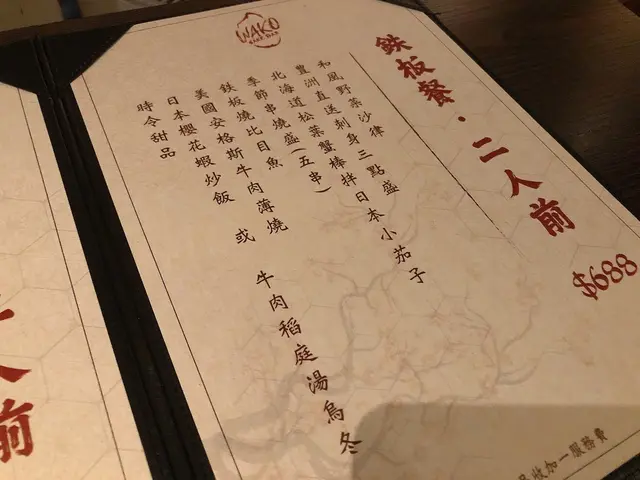 WAKO
鉄板餐·二人前
$688
和風野菜沙律
豐洲直送刺身三點盛
北海道松葉蟹棒拌日本小茄子
季節串燒盛(五串)
鉄板燒比目魚
美國安格斯牛肉薄燒
日本櫻花蝦炒飯 或 牛肉稻庭湯烏冬
時令甜品
收加一服務費
人前